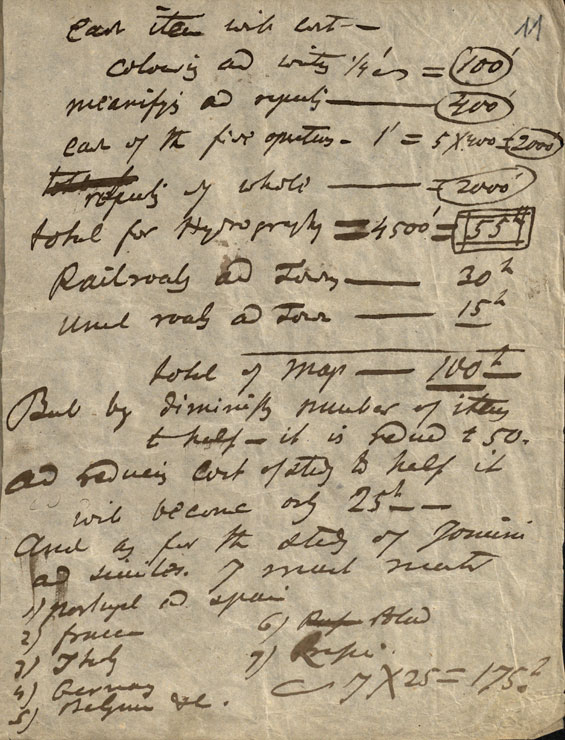 11
each item will cost —
colouring ad writing 1/4' = 100'
ad — 400'
each of th five — 1' = 5 X 400 = 2000'
of whole — = 2000'
total for Hydrography = 4500' = 55h
Railroads ad Towns — 30h
roads ad Town — 15h
total of map — 100h —
But by diminish number of items
t half — it is reduced t 50.
ad reducing cost of study to half it
will become only 25h — —
And as for th study of Jomini
ad similar. 7 maps
1) Portugal ad Spain
2) france
3) Italy
4) Germany
5) Belgium &c.
6) Poland
7) Russia
7 X 25 = 175.h